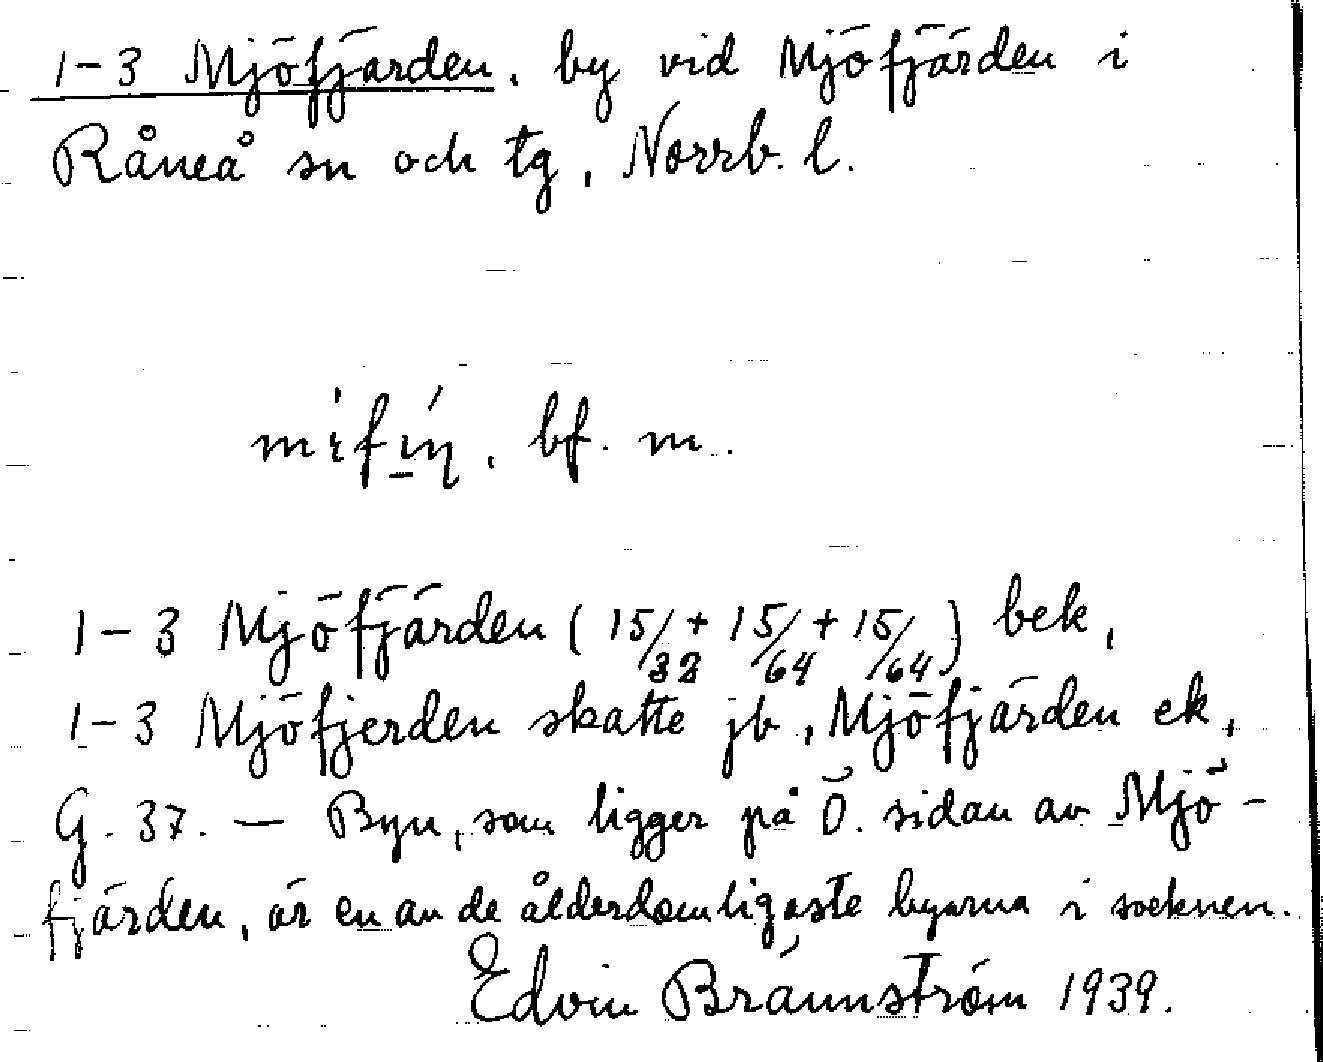 1-3 Mjöfjärden, by vid Mjöfjärden i
Råneå sn och tg, Norrb. l.
bf. m.
1-3 Mjöfjärden (15/32 + 15/64 + 15/64) bek,
1-3 Mjöfjerden skatte jb, Mjöfjärden ek,
G. 37. — Byn, som ligger på Ö. sidan av Mjö-
fjärden, är en av de ålderdomligaste byarna i socknen.
Edvin Brännström 1939.